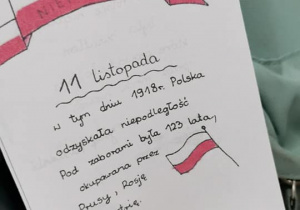 NIE
11 listopada
w tym dniu 1918r. Polska
odzyskała niepodległość
Pod zaborami była 123 lata,
okupowana przez
Prusy, Rosję